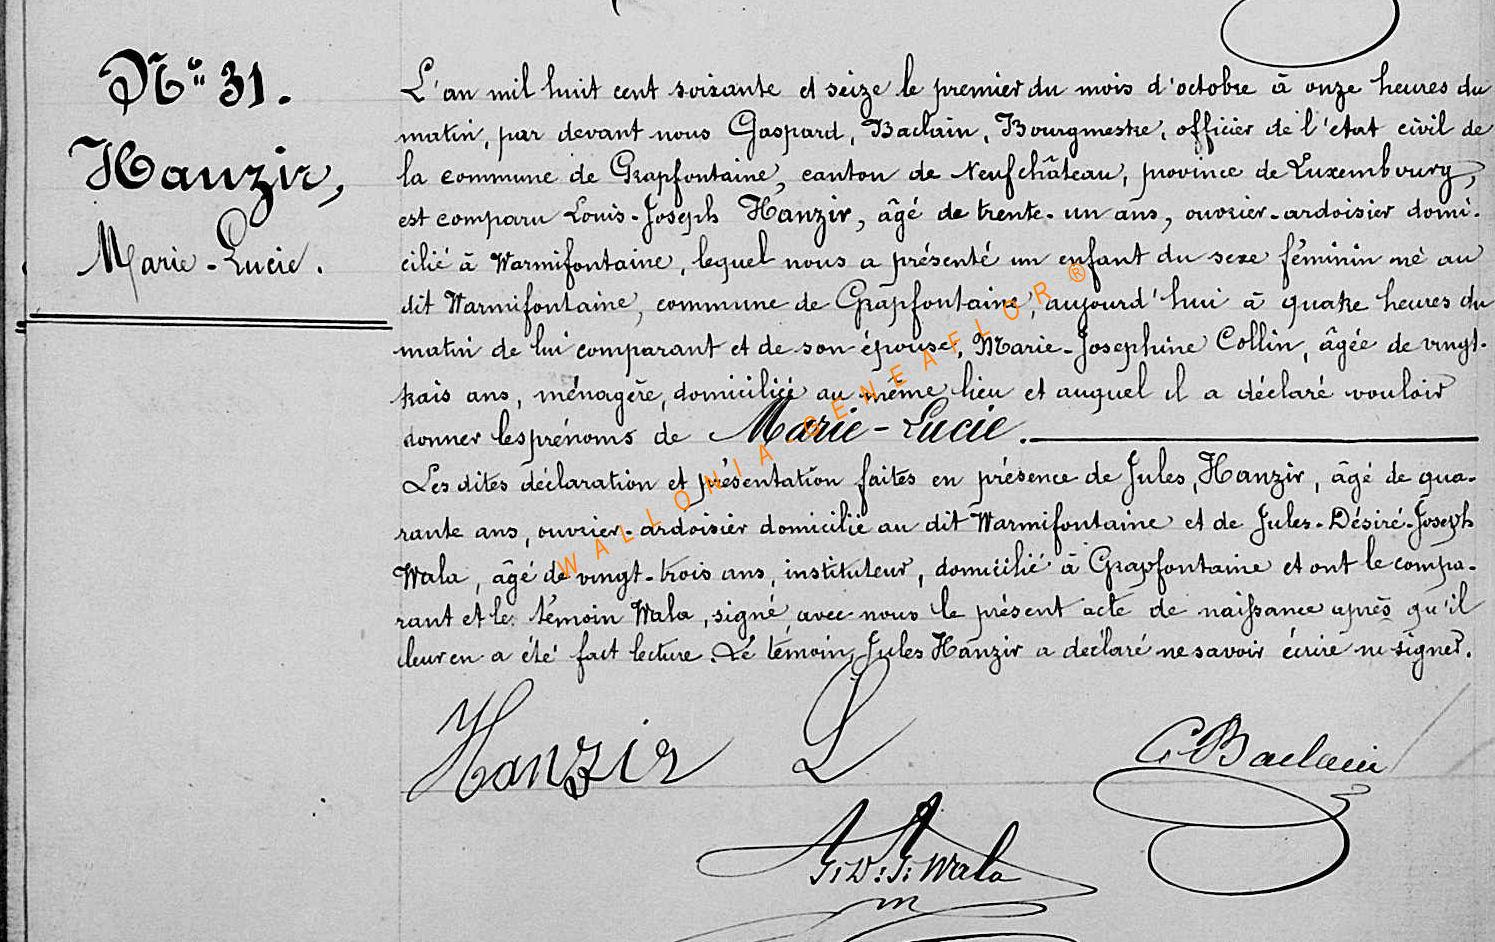 Nº 31.
Hanzir,
Marie-Lucie.
L'an mil huit cent soixante et seize le premier du mois d'octobre à onze heures du
matin, par devant nous Gaspard, Baclain, Bourgmestre, officier de l'état civil de
la commune de Grapfontaine, canton de Neufchâteau, province de Luxembourg,
est comparu Louis-Joseph Hanzir, âgé de trente-un ans, ouvrier-ardoisier domi-
cilié à Warmifontaine, lequel nous a présenté un enfant du sexe féminin né au
dit Warmifontaine, commune de Grapfontaine, aujourd'hui à quatre heures du
matin de lui comparant et de son épouse, Marie-Josephine Collin, âgée de vingt-
trois ans, ménagère, domiciliée au même lieu et auquel il a déclaré vouloir
donner les prénoms de Marie-Lucie.
Les dites déclaration et présentation faites en présence de Jules, Hanzir, âgé de qua-
rante ans, ouvrier-ardoisier domicilié au dit Warmifontaine et de Jules-Désiré-Joseph
Wala, âgé de vingt-trois ans, instituteur, domicilié à Grapfontaine et ont le compa-
rant et le témoin Wala, signé avec nous le présent acte de naissance après qu'il
leur en a été fait lecture. Le témoin, Jules Hanzir a déclaré ne savoir écrire ni signer.
Hanzir L
G Baclain
J. D. J. Wala
WALLONIA-GENEAFLOR®